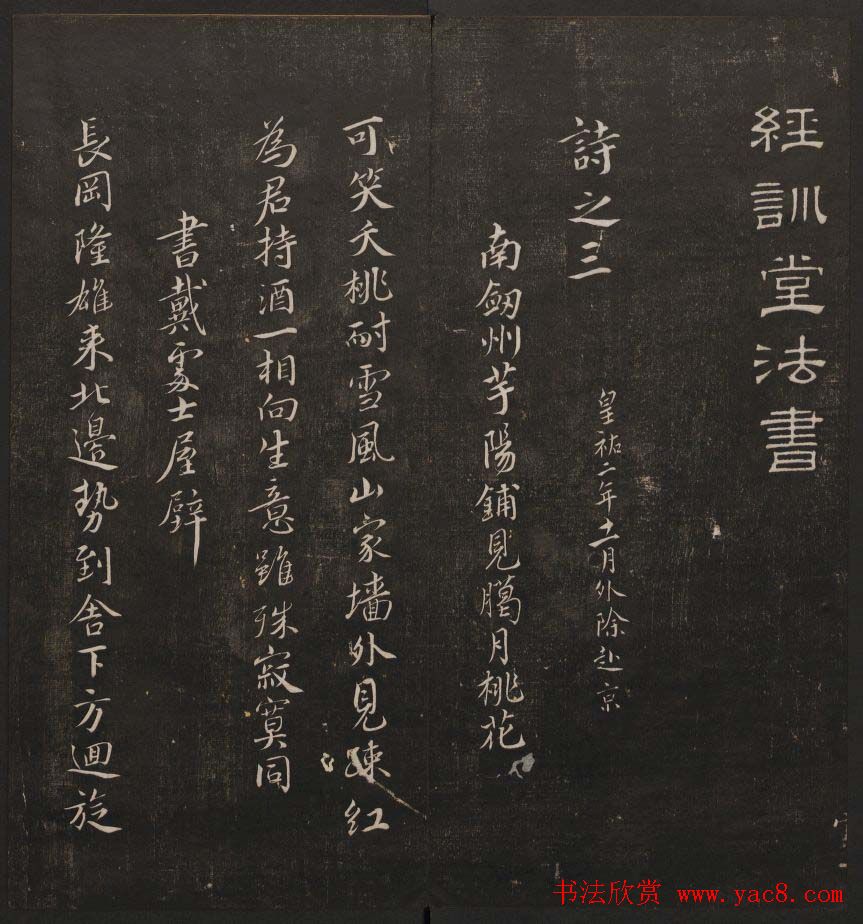 經訓堂法書
詩之三
皇祐二年十一月外除赴京
南劔州芋陽鋪見臈月桃花
可笑夭桃耐雪風山家墻外見疎紅
為君持酒一相向生意雖殊寂寞同
書戴處士屋壁
長岡隆雄来北邊勢到舎下方迴旋
书法欣赏 www.yac8.com